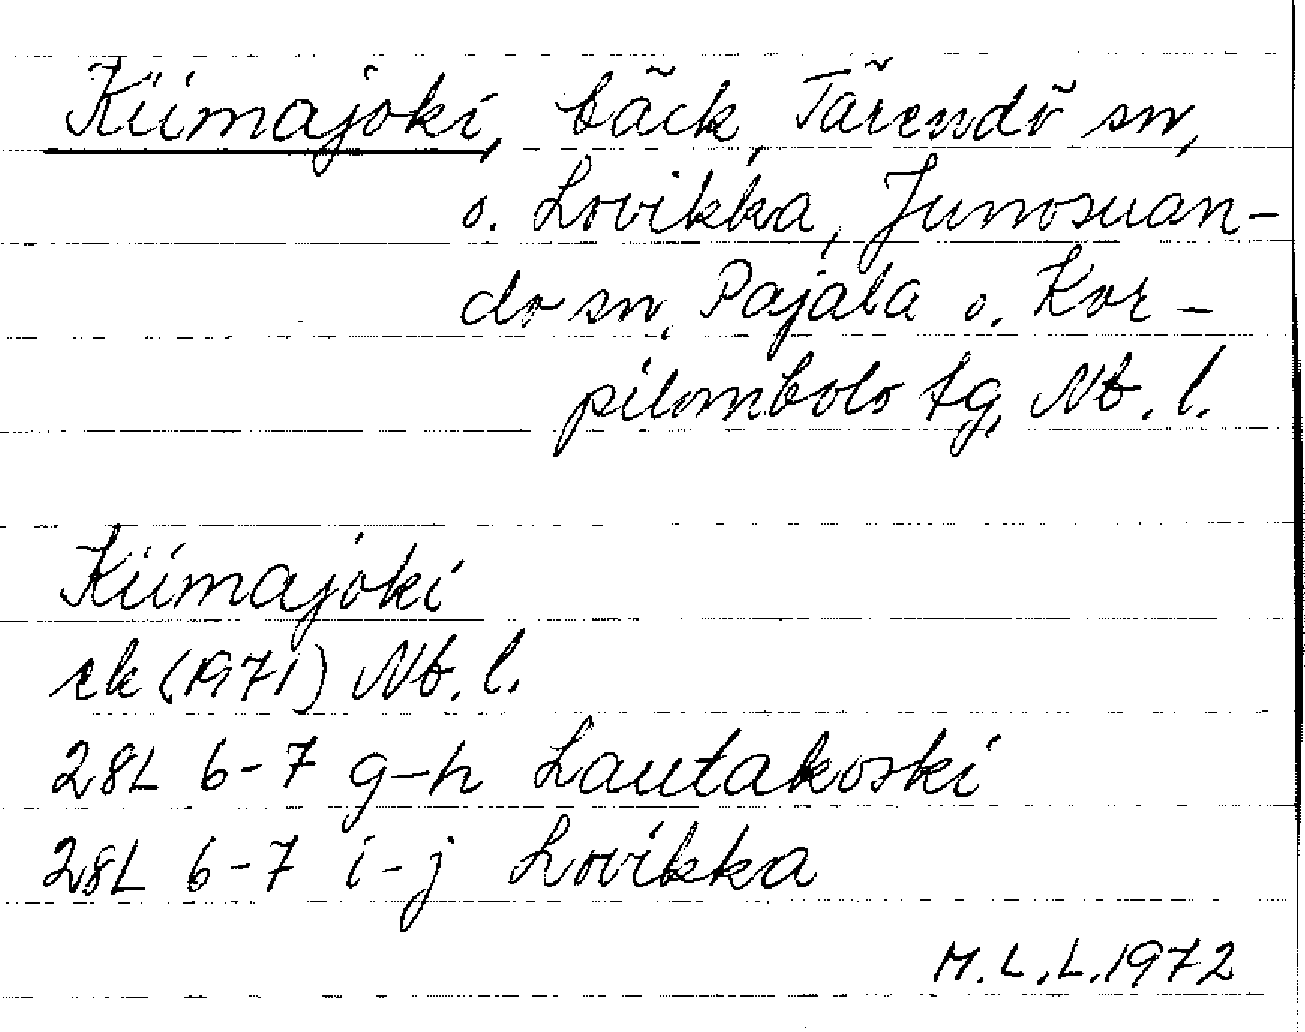 Kiimajoki, bäck, Tärendö sn,
o. Lovikka, Junosuan-
do sn, Pajala o. Kor-
pilombolo tg, Nb. l.
Kiimajoki
ek (1971) Nb. l.
28L 6-7 g-h Lautakoski
28L 6-7 i-j Lovikka
M.L.L. 1972